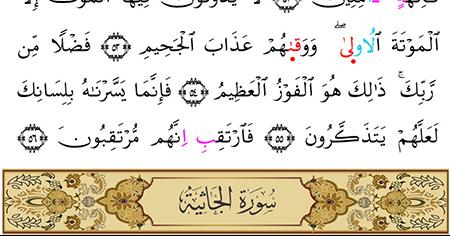 يَذُوقُونَ فِيهَا اَلْمَوْتَ إِلَّا
اَلْمَوْتَةَ اَلُاولىٰۖ وَوَقىٰهُمْ عَذَابَ اَلْجَحِيمِ ٥٣ فَضْلًا مِّن
رَّبِّكَۚ ذَٰلِكَ هُوَ اَلْفَوْزُ اَلْعَظِيمُ ٥٤ فَإِنَّمَا يَسَّرْنَٰهُ بِلِسَانِكَ
لَعَلَّهُمْ يَتَذَكَّرُونَ ٥٥ فَارْتَقِبِ اِنَّهُم مُّرْتَقِبُونَ ٥٦
سُورَةُ الجَاثِيَةِ